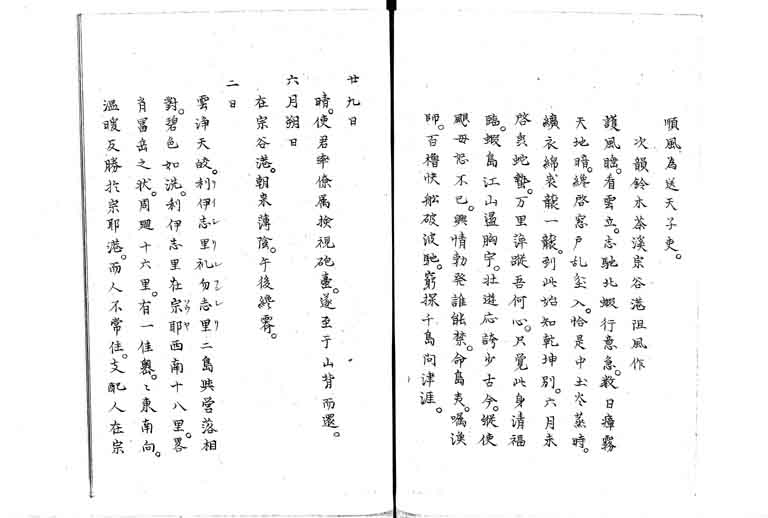 順風為送天子吏。
次韻鈴木茶溪宗谷港阻風作
護風臨。看雲立。志馳北蝦行意急。數日瘴霧
天地暗。纔啓窓戶乱坌入。恰是中土炎蒸時。
纊衣綿裘襲一襲。到此始知乾坤別。六月未
啓夷蛇蟄。万里萍蹤吾何心。只覺此身清福
臨。蝦島江山盪胸宇。壮遊応誇少古今。縱使
颶母怒不已。興情勃発誰能禁。命島夷。嘱漁
師。百櫓快船破波馳。窮探千島向津涯。
廿九日
晴。使君率僚属撿視砲臺。遂至于山背而還。
六月朔日
在宗谷港。朝来薄陰。午後終霽。
二日
雲淨天皎。利伊志里礼勿志里二島與営落相
對。碧色如洗。利伊志里在宗耶西南十八里。畧
肖冨岳之状。周廻十六里。有一佳奥。〻東南向。
温暖反勝於宗耶港。而人不常住。支配人在宗